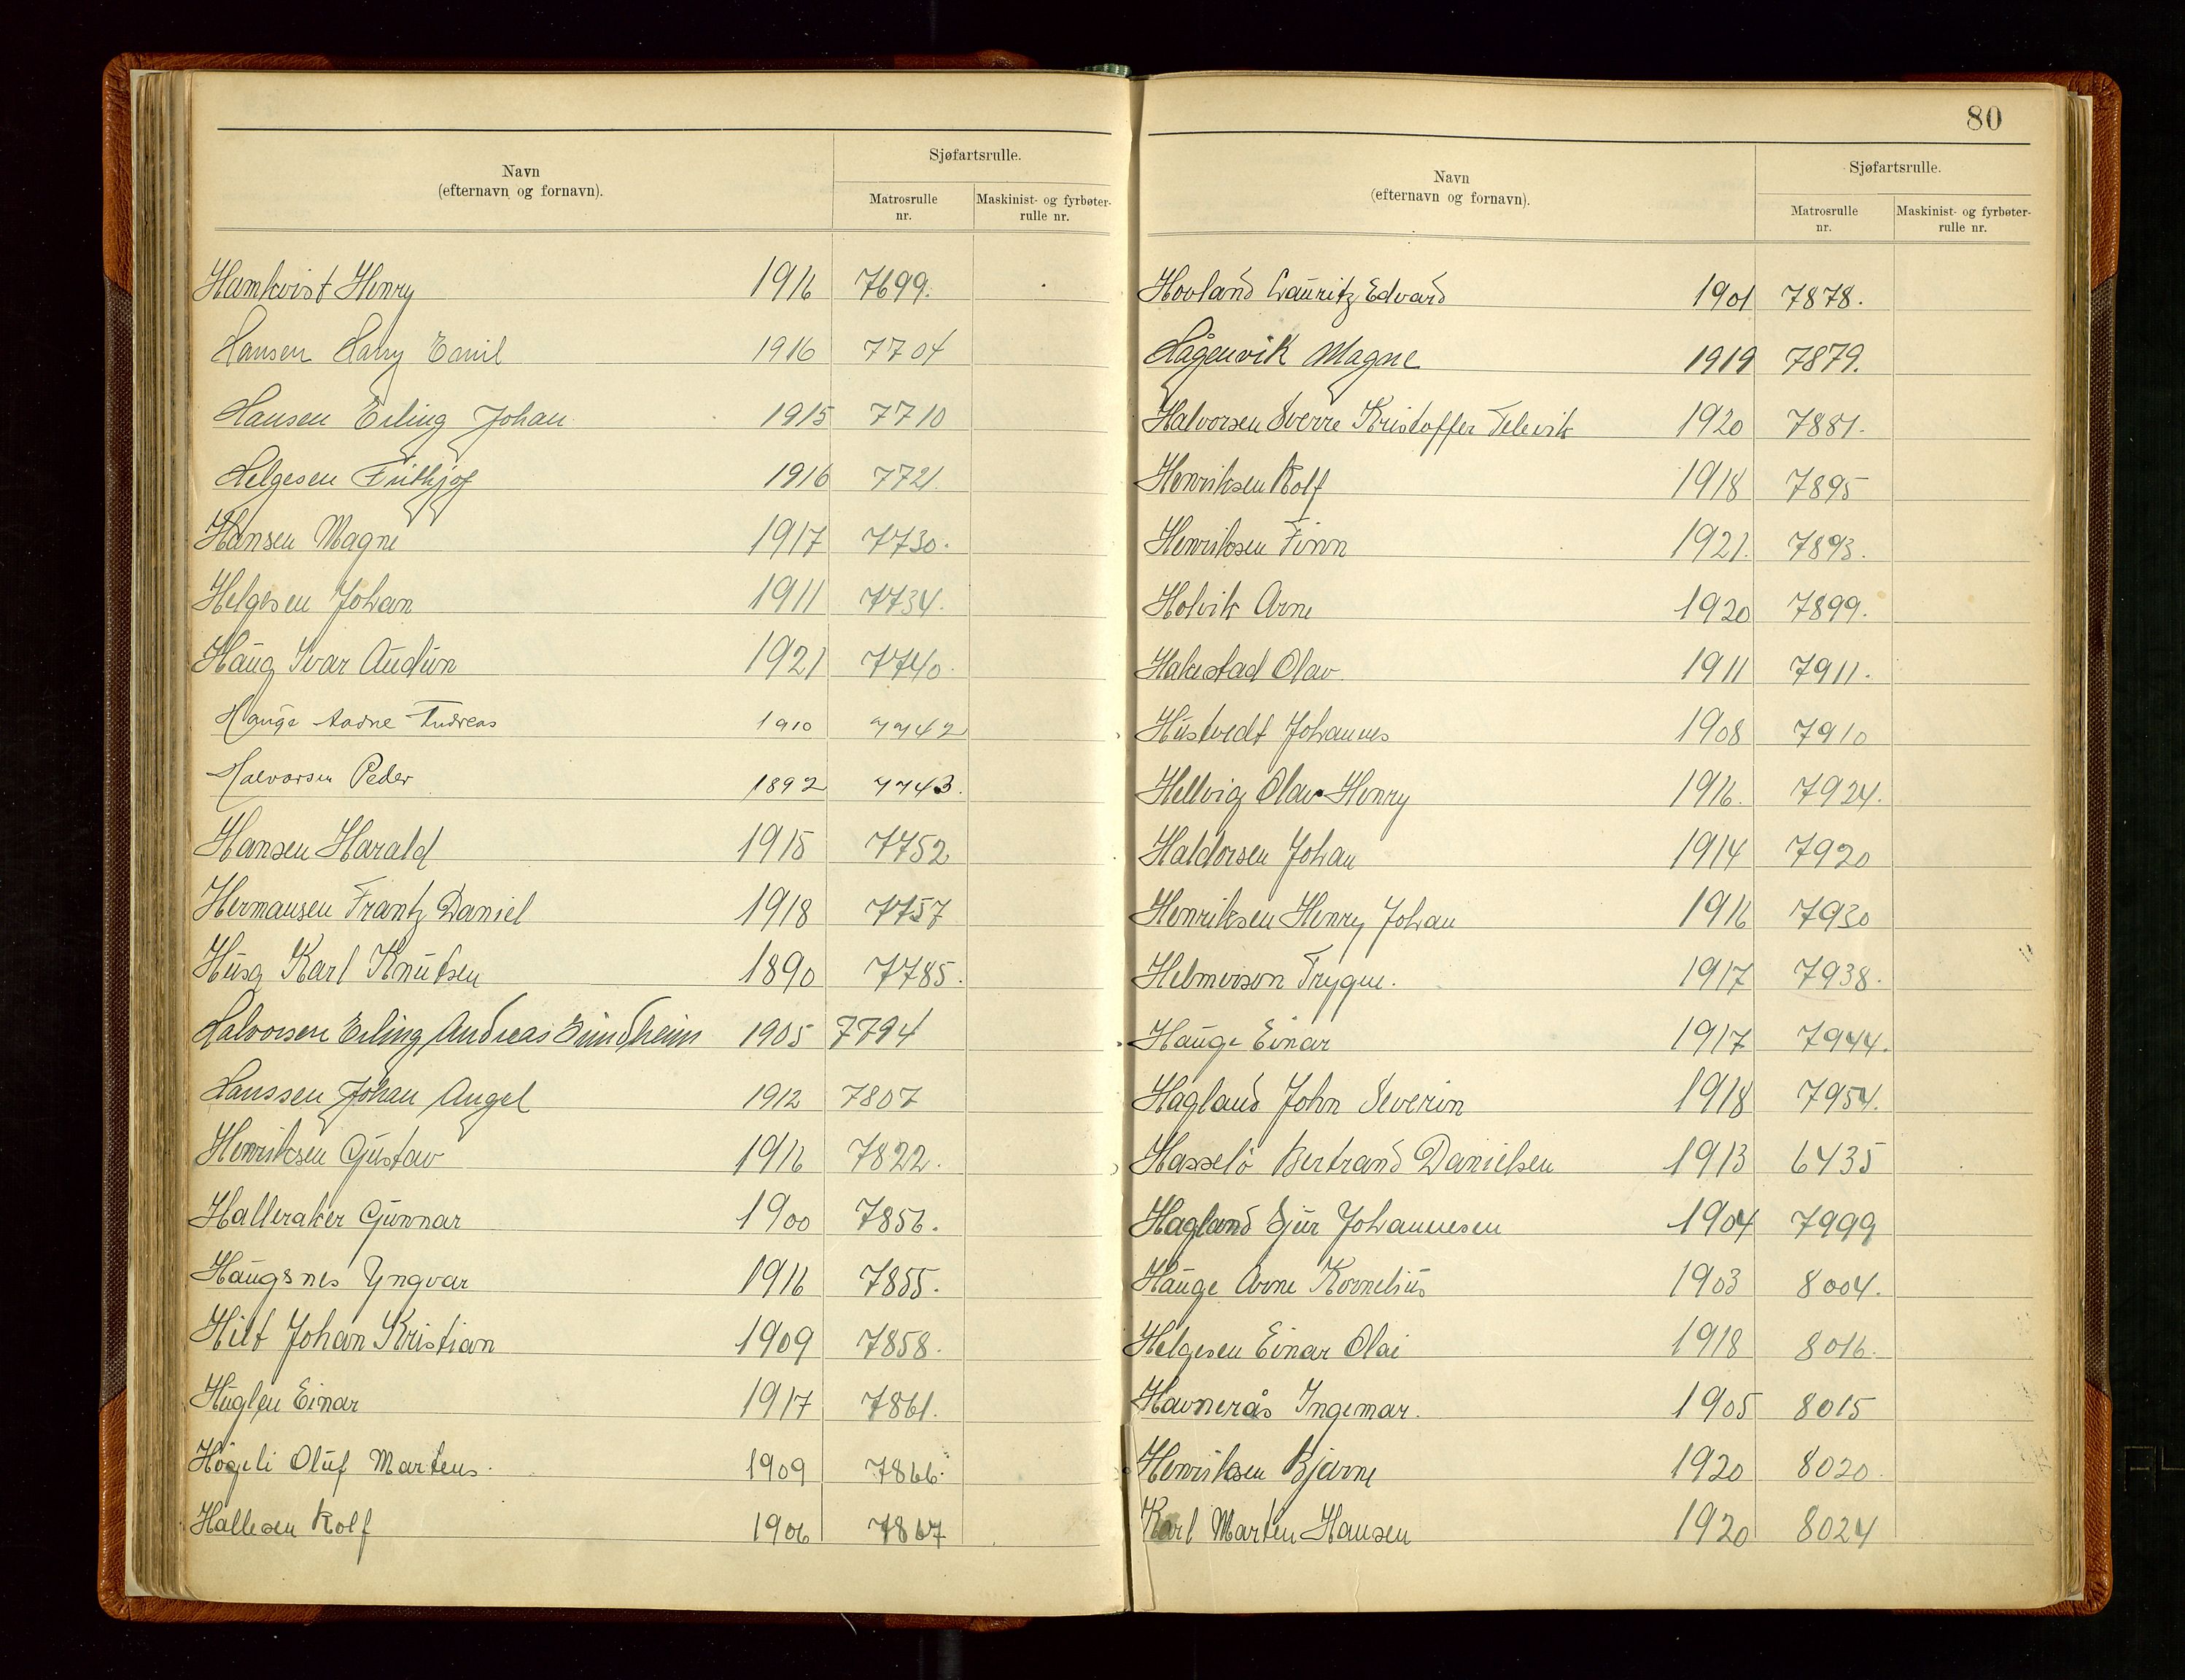 Navn
(efternavn og fornavn).
Sjøfartsrulle.
Matrosrulle
nr.
Maskinist- og fyrbøter-
rulle nr.
Hamkvist Henry 1916 7699.
Hansen Harry Emil 1916 7704
Hansen Erling Johan 1915 7710
Helgesen Frithjof 1916 7721
Hansen Magne 1917 7730.
Helgesen Johan 1911 7734.
Haug Ivar Audun 1921 7740.
Hauge Aadne Andreas 1910 7742
Halvorsen Peder 1892 7743.
Hansen Harald 1915 7752
Hermansen Frantz Daniel 1918 7757
Husg Karl Knutsen 1890 7785.
Halvorsen Erling Andreas Sundheim 1905 7794
Hanssen Johan Angel 1912 7807
Henriksen Gustav 1916 7822.
Halleraker Gunnar 1900 7856.
Haugsnes Yngvar 1916 7855.
Hilt Johan Kristian 1909 7858.
Huglen Einar 1917 7861.
Høgeli Oluf Martens 1909 7866.
Hallesen Rolf 1906 7867
80
Navn
(efternavn og fornavn).
Sjøfartsrulle.
Matrosrulle
nr.
Maskinist- og fyrbøter-
rulle nr.
Hovland Lauritz Edvard 1901 7878.
Hågenvik Magne 1919 7879.
Halvorsen Sverre Kristoffer Televik 1920 7881.
Henriksen Rolf 1918 7895
Henriksen Finn 1921. 7893.
Holvik Arne 1920 7899.
Hakestad Olav 1911 7911.
Hustvedt Johannes 1908 7910
Hellvig Olav Henry 1916. 7924.
Haldorsen Johan 1914 7920
Henriksen Henry Johan 1916 7930
Helmerson Trygve. 1917 7938.
Hauge Einar 1917 7944.
Hagland John Severin 1918 7954.
Hasselø Bertrand Danielsen 1913 6435
Hagland Sjur Johannesen 1904 7999
Hauge Arne Kornelius 1903 8004.
Helgesen Einar Olai 1918 8016.
Havnerås Ingemar. 1905 8015
Henriksen Bjarne 1920 8020.
Karl Marten Hansen 1920 8024